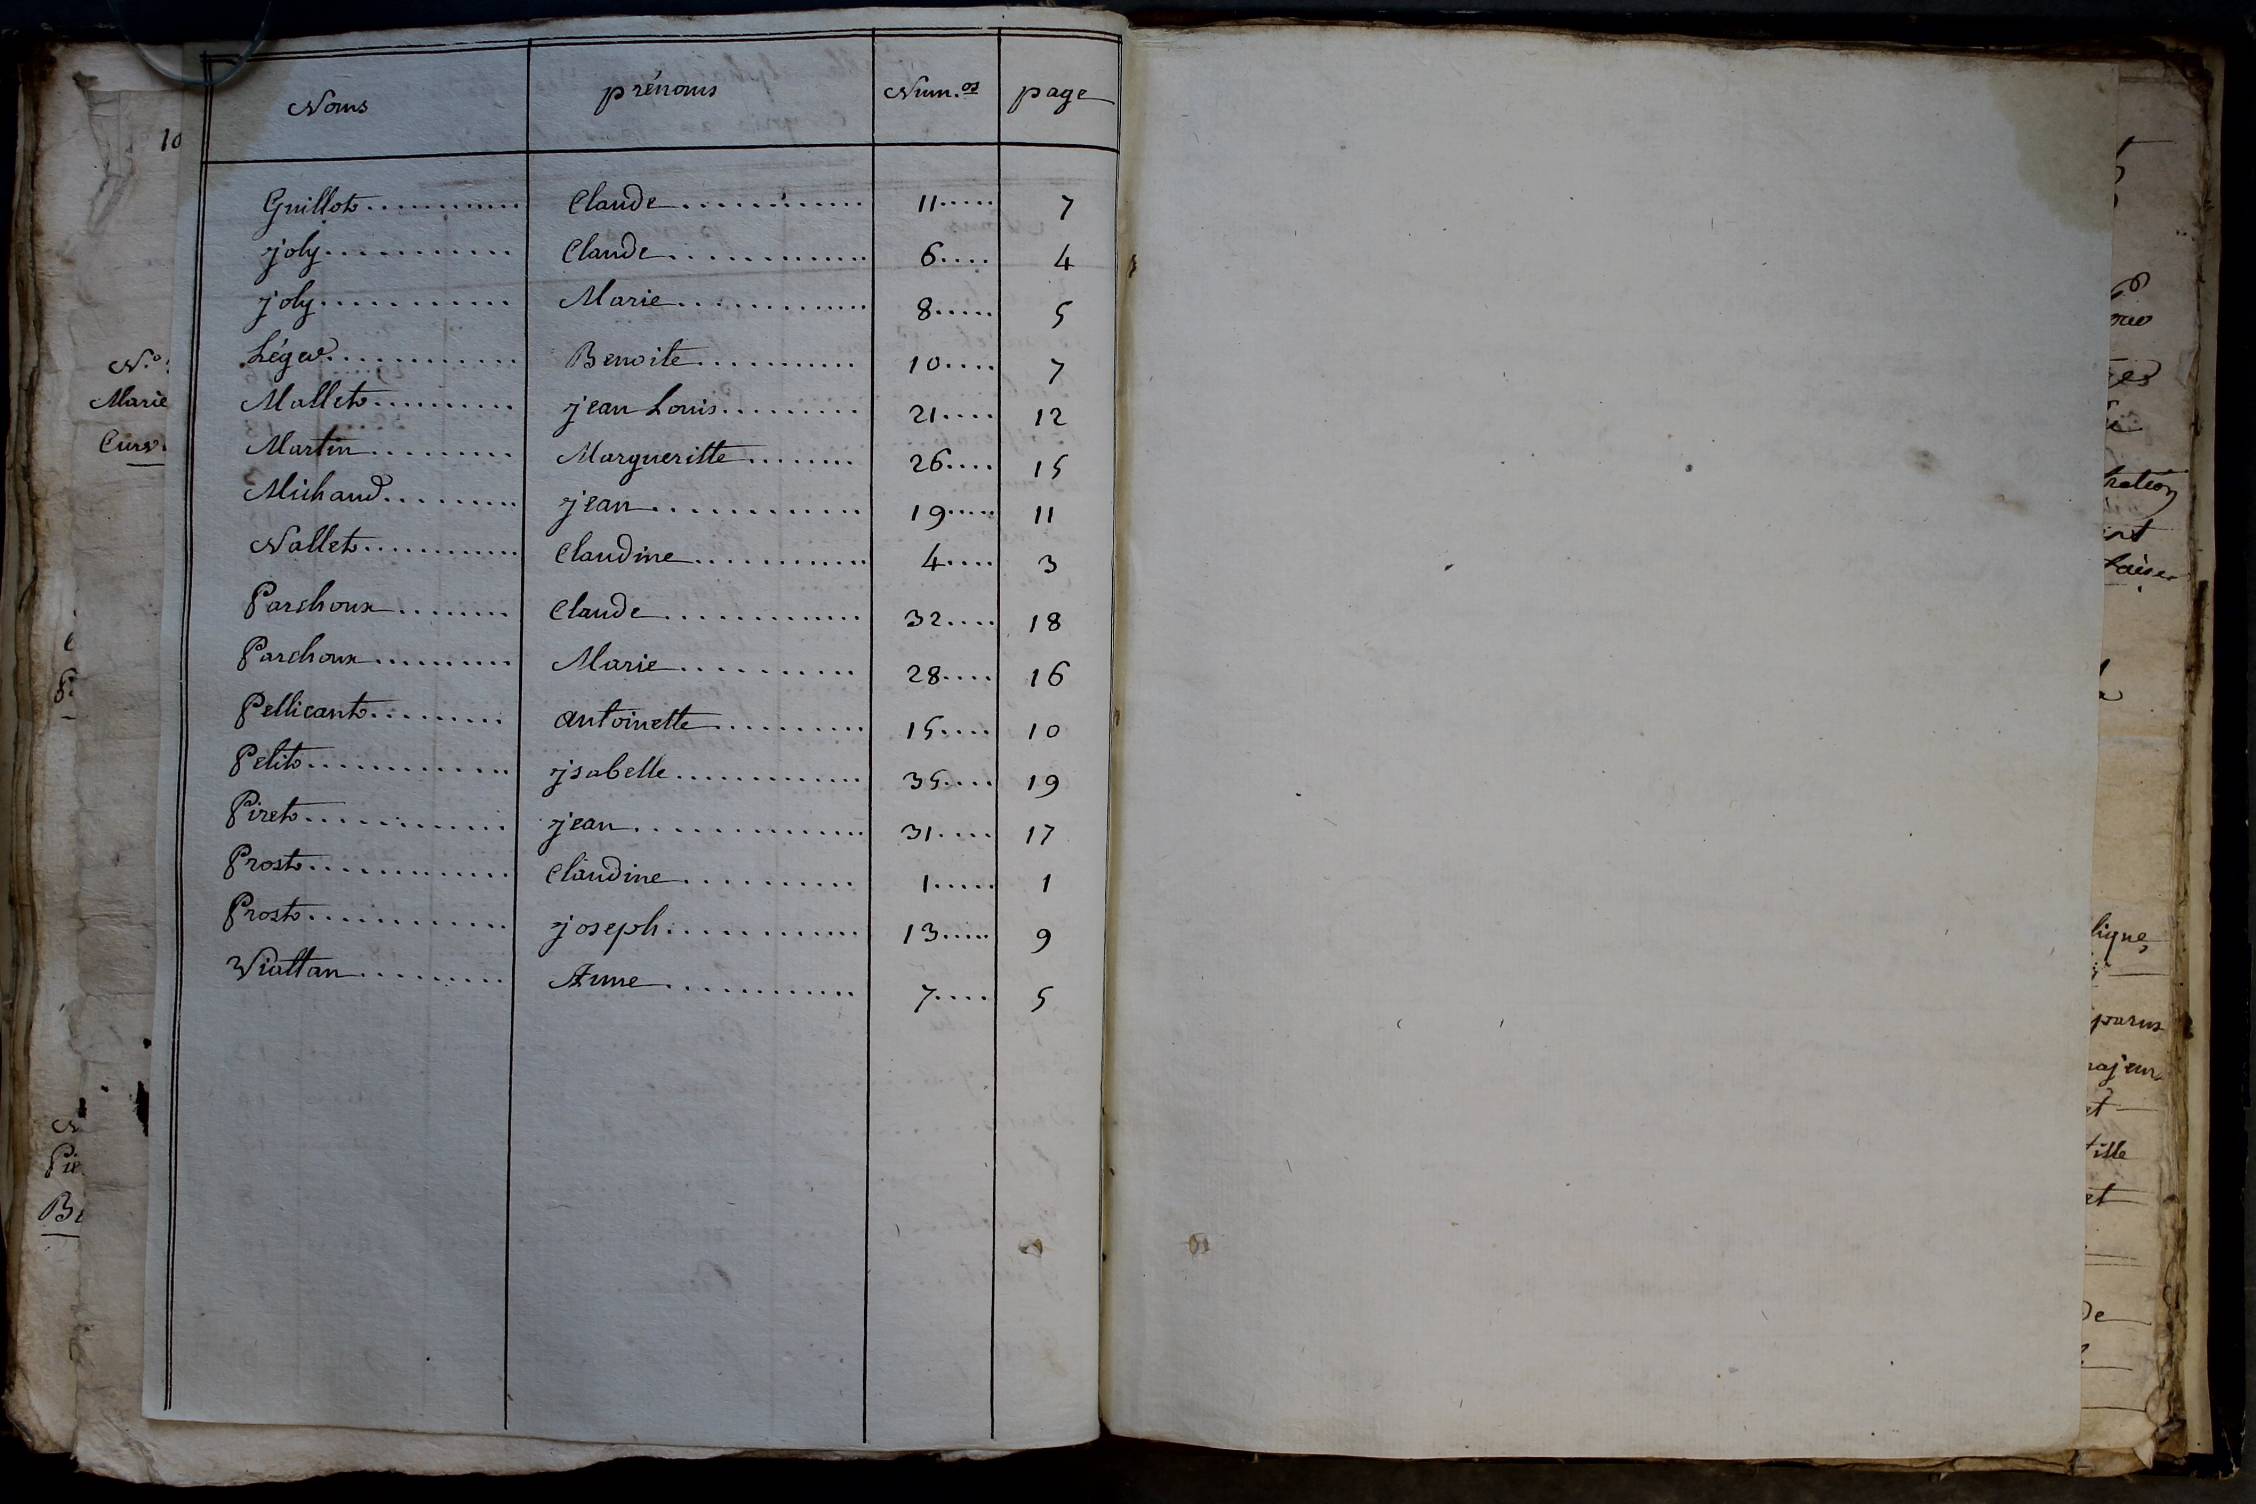 Noms prénoms Num.os page
Guillot............ Claude............. 11..... 7
joly............ Claude............. 6.... 4
joly............ Marie............. 8..... 5
Léger............ Benoite........... 10.... 7
Mallet.......... jean Louis......... 21.... 12
Martin......... Margueritte........ 26.... 15
Michaud......... jean............ 19..... 11
Nallet............ Claudine............ 4.... 3
Parchoux........ Claude............. 32.... 18
Parchoux.......... Marie........... 28.... 16
Pellicant......... antoinette.......... 15.... 10
Petit............ jsabelle............. 35.... 19
Piret............ jean............. 31.... 17
Prost............ Claudine........... 1..... 1
Prost............ joseph............. 13..... 9
Viattan......... Anne............. 7.... 5
10
N.o
Marie
Pie
ligne
parus
ajeur
et
et
De